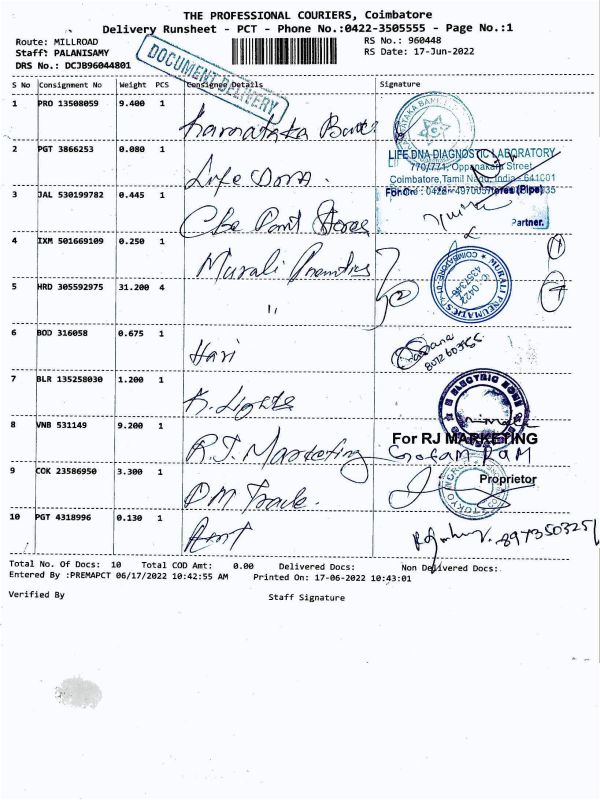 THE PROFESSIONAL COURIERS, Coimbatore
Delivery Runsheet - PCT - Phone No.:0422-3505555 - Page No.:1
Route: MILLROAD
RS No.: 960448
Staff: PALANISAMY
RS Date: 17-Jun-2022
DRS No.: DCJB96044801
DOCUMENT DELIVERY
S No Consignment No Weight PCS Consignee Details Signature
1 PRO 13508059 9.400 1 Karnataka Bank
2 PGT 3866253 0.080 1 Life DNA.
LIFE DNA DIAGNOSTIC LABORATORY
770/771, Oppanakara Street,
Coimbatore, Tamil Nadu, India - 641001
3 JAL 530199782 0.445 1 Cbe Paint Stores
Partner.
4 IXM 501669109 0.250 1 Murali
MURALI PNEUMATICS
COIMBATORE-01
0422
4357346
5 HRD 305592975 31.200 4 11
2
6 BOD 316058 0.675 1 Hari
7 BLR 135258030 1.200 1 K. Lights
8 VNB 531149 9.200 1 R.J. Marketing
For RJ MARKETING
9 COK 23586950 3.300 1 DM Trade.
Proprietor
10 PGT 4318996 0.130 1
Total No. Of Docs: 10 Total COD Amt: 0.00 Delivered Docs: Non Delivered Docs:
Entered By :PREMAPCT 06/17/2022 10:42:55 AM Printed On: 17-06-2022 10:43:01
Verified By Staff Signature